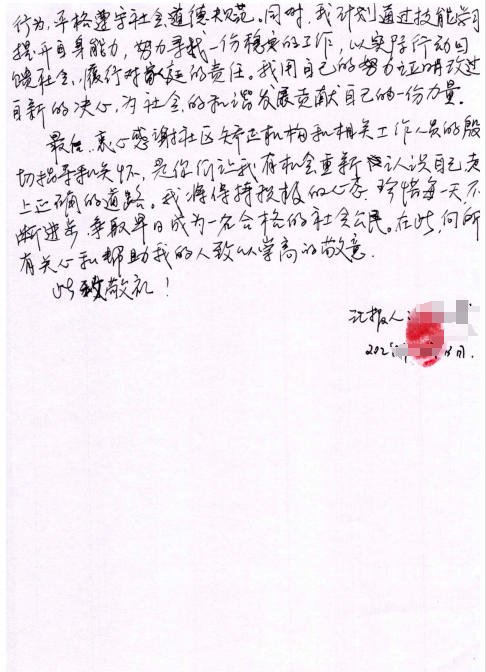 行为,严格遵守社会道德规范。同时,我计划通过技能学习
提升自身能力,努力寻找一份稳定的工作,以实际行动回
馈社会,履行对家庭的责任。我用自己的努力证明改过
自新的决心,为社会的和谐发展贡献自己的一份力量.
最后,衷心感谢社区矫正机构和相关工作人员的殷
切指导和关怀,是你们让我有机会重新认识自己走
上正确的道路。我将保持积极的心态,珍惜每一天不
断进步,争取早日成为一名合格的社会公民。在此,向所
有关心和帮助我的人致以崇高的敬意.
此致敬礼!
汇报人:
202